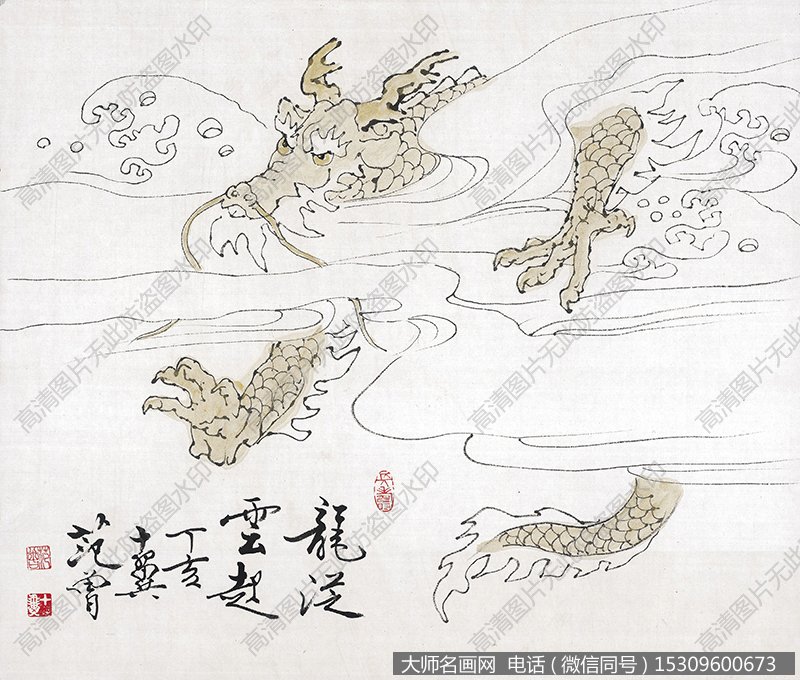 龍從
雲起
丁亥
十翼
范曾
十翼
高清图片无此防盗图水印
大师名画网 电话（微信同号）15309600673